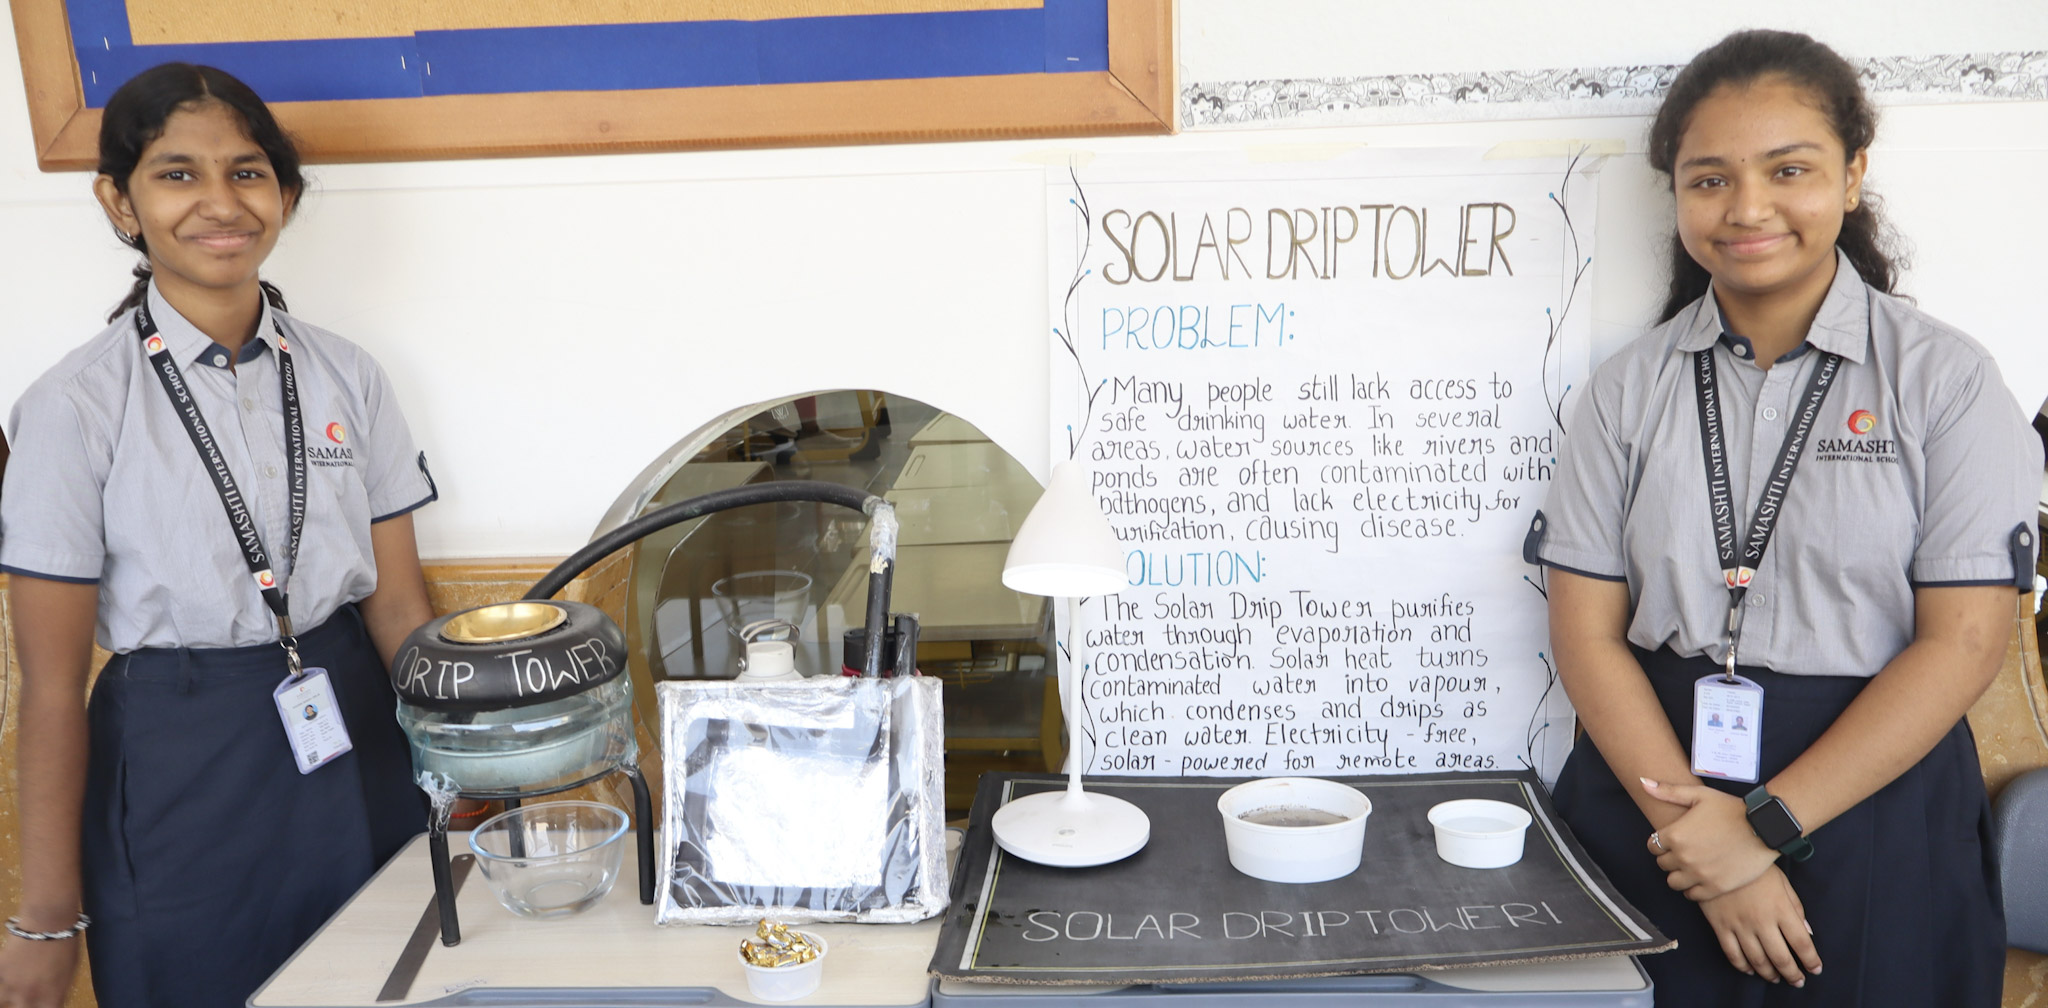 SOLAR DRIP TOWER
PROBLEM:
Many people still lack access to
safe drinking water. In several
areas, water sources like rivers and
ponds are often contaminated with
pathogens, and lack electricity for
purification, causing disease.
SOLUTION:
The Solar Drip Tower purifies
water through evaporation and
condensation. Solar heat turns
contaminated water into vapour,
which condenses and drips as
clean water. Electricity - free,
solar - powered for remote areas.
DRIP TOWER
SOLAR DRIP TOWER!
SAMASHTI INTERNATIONAL SCHOOL
SAMASHTI INTERNATIONAL SCHOOL
SAMASHTI
INTERNATIONAL
SAMASHTI INTERNATIONAL SCHOOL
SAMASHTI INTERNATIONAL SCHOOL
SAMASHTI
INTERNATIONAL SCHOOL